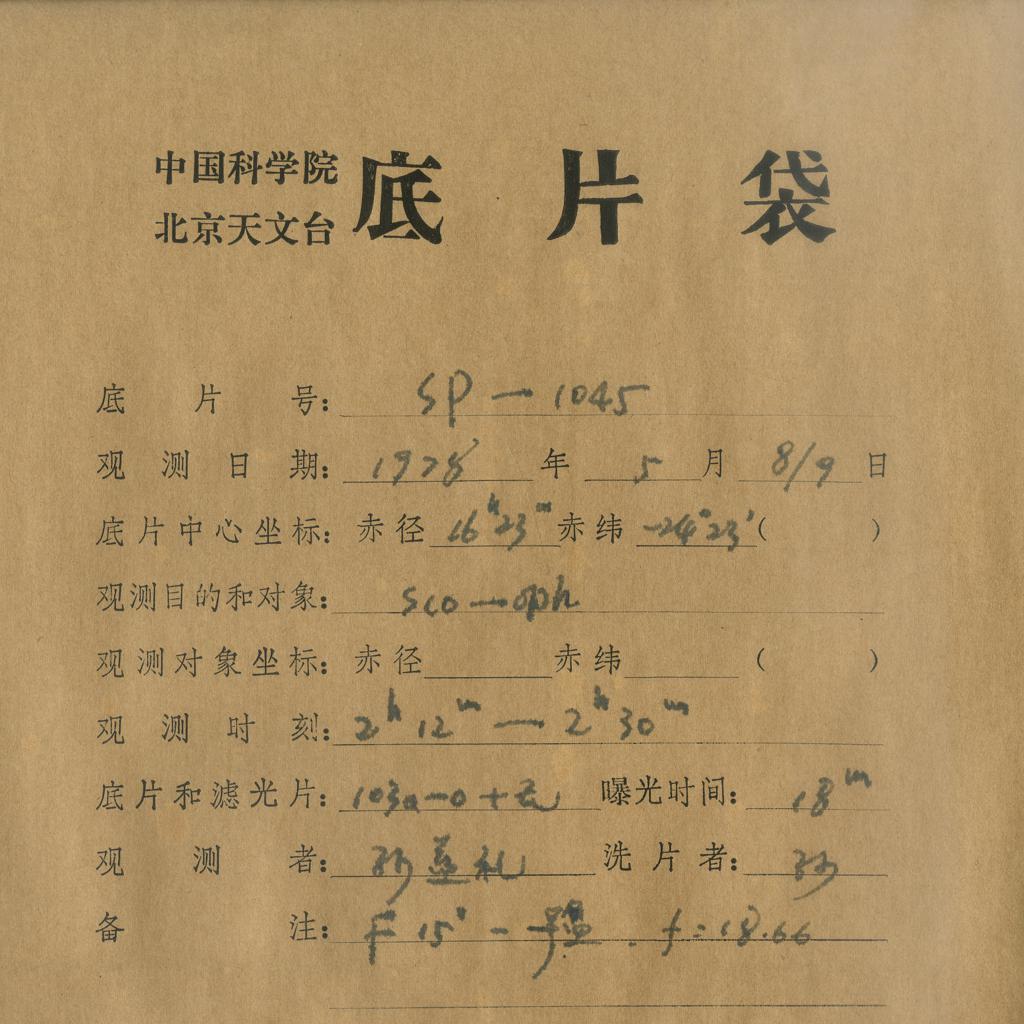 中国科学院
北京天文台 底片袋
底片号: SP-1045
观测日期: 1978年5月8/9日
底片中心坐标: 赤径 16h23m 赤纬 -24°23′ ( )
观测目的和对象: Sco-oph
观测对象坐标: 赤径 赤纬 ( )
观测时刻: 2h12m — 2h30m
底片和滤光片: 103a-0+无 曝光时间: 18m
观测者: 孙 礼 洗片者: 孙
备注: F 15 - f=18.66